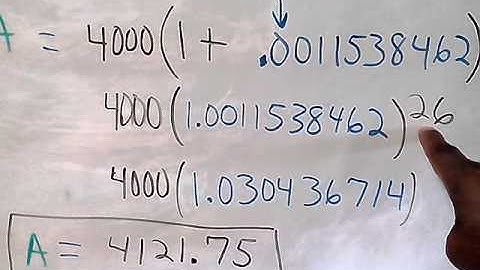 A = 4000(1 + .0011538462)
4000(1.0011538462)^26
4000(1.030436714)
A = 4121.75